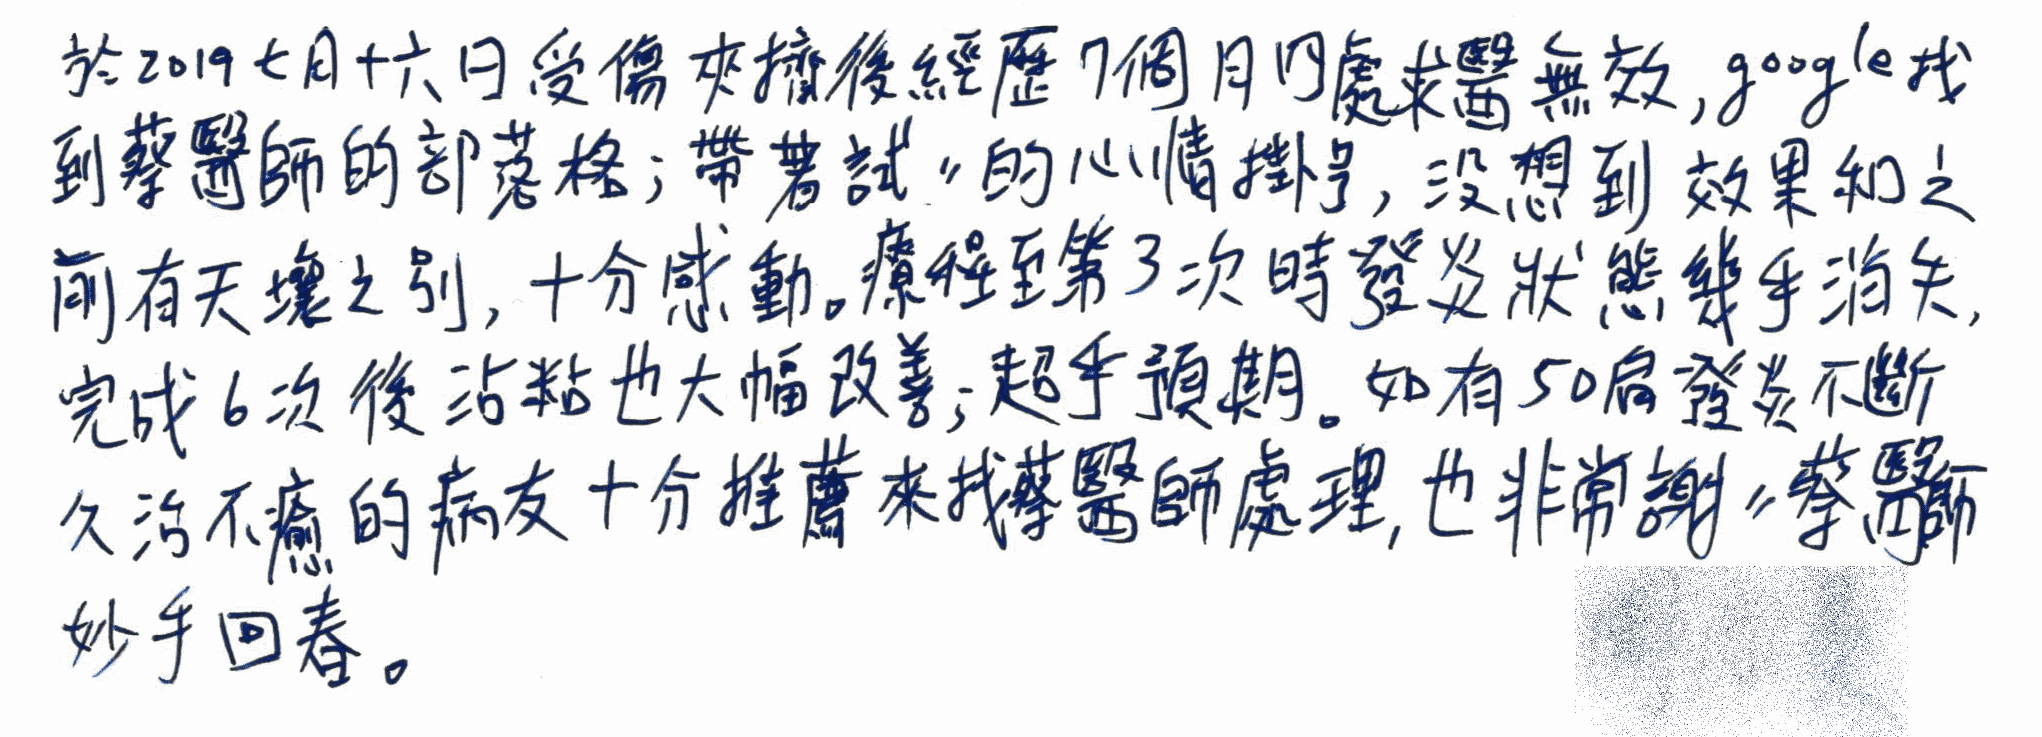 於2019七月十六日受傷夾擠後經歷7個月四處求醫無效,google找
到蔡醫師的部落格;帶著試〃的心情掛号,没想到效果和之
前有天壤之别,十分感動。療程至第3次時發炎狀態幾乎消失,
完成6次後沾粘也大幅改善;超乎預期。如有50肩發炎不斷
久治不癒的病友十分推薦來找蔡醫師處理,也非常謝〃蔡醫師
妙手回春。